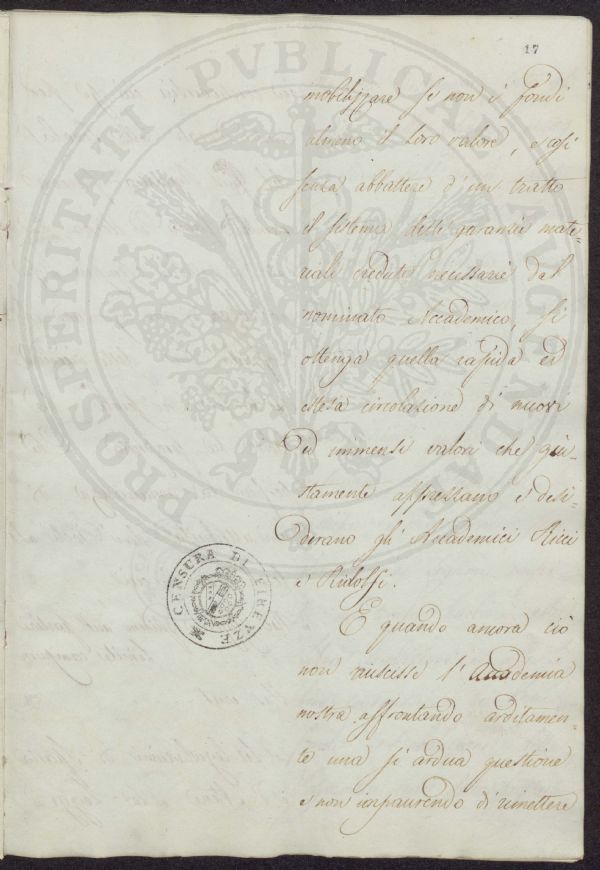 17
mobilizzare se non i fondi
almeno il loro valore, e così
senza abbattere d'un tratto
il sistema delle garanzie mate-
riali credute necessarie dal
nominato Accademico, si
ottenga quella rapida ed
estesa circolazione di nuovi
ed immensi valori che giu-
stamente apprezzano e desi-
derano gli Accademici Ricci
e Ridolfi.
E quando ancora ciò
non riuscisse l'Accademia
nostra affrontando arditamen-
te una sì ardua questione
e non impaurendo di rimettere
CENSURA DI FIRENZE
PROSPERITATI PUBLICAE AUGENDAE